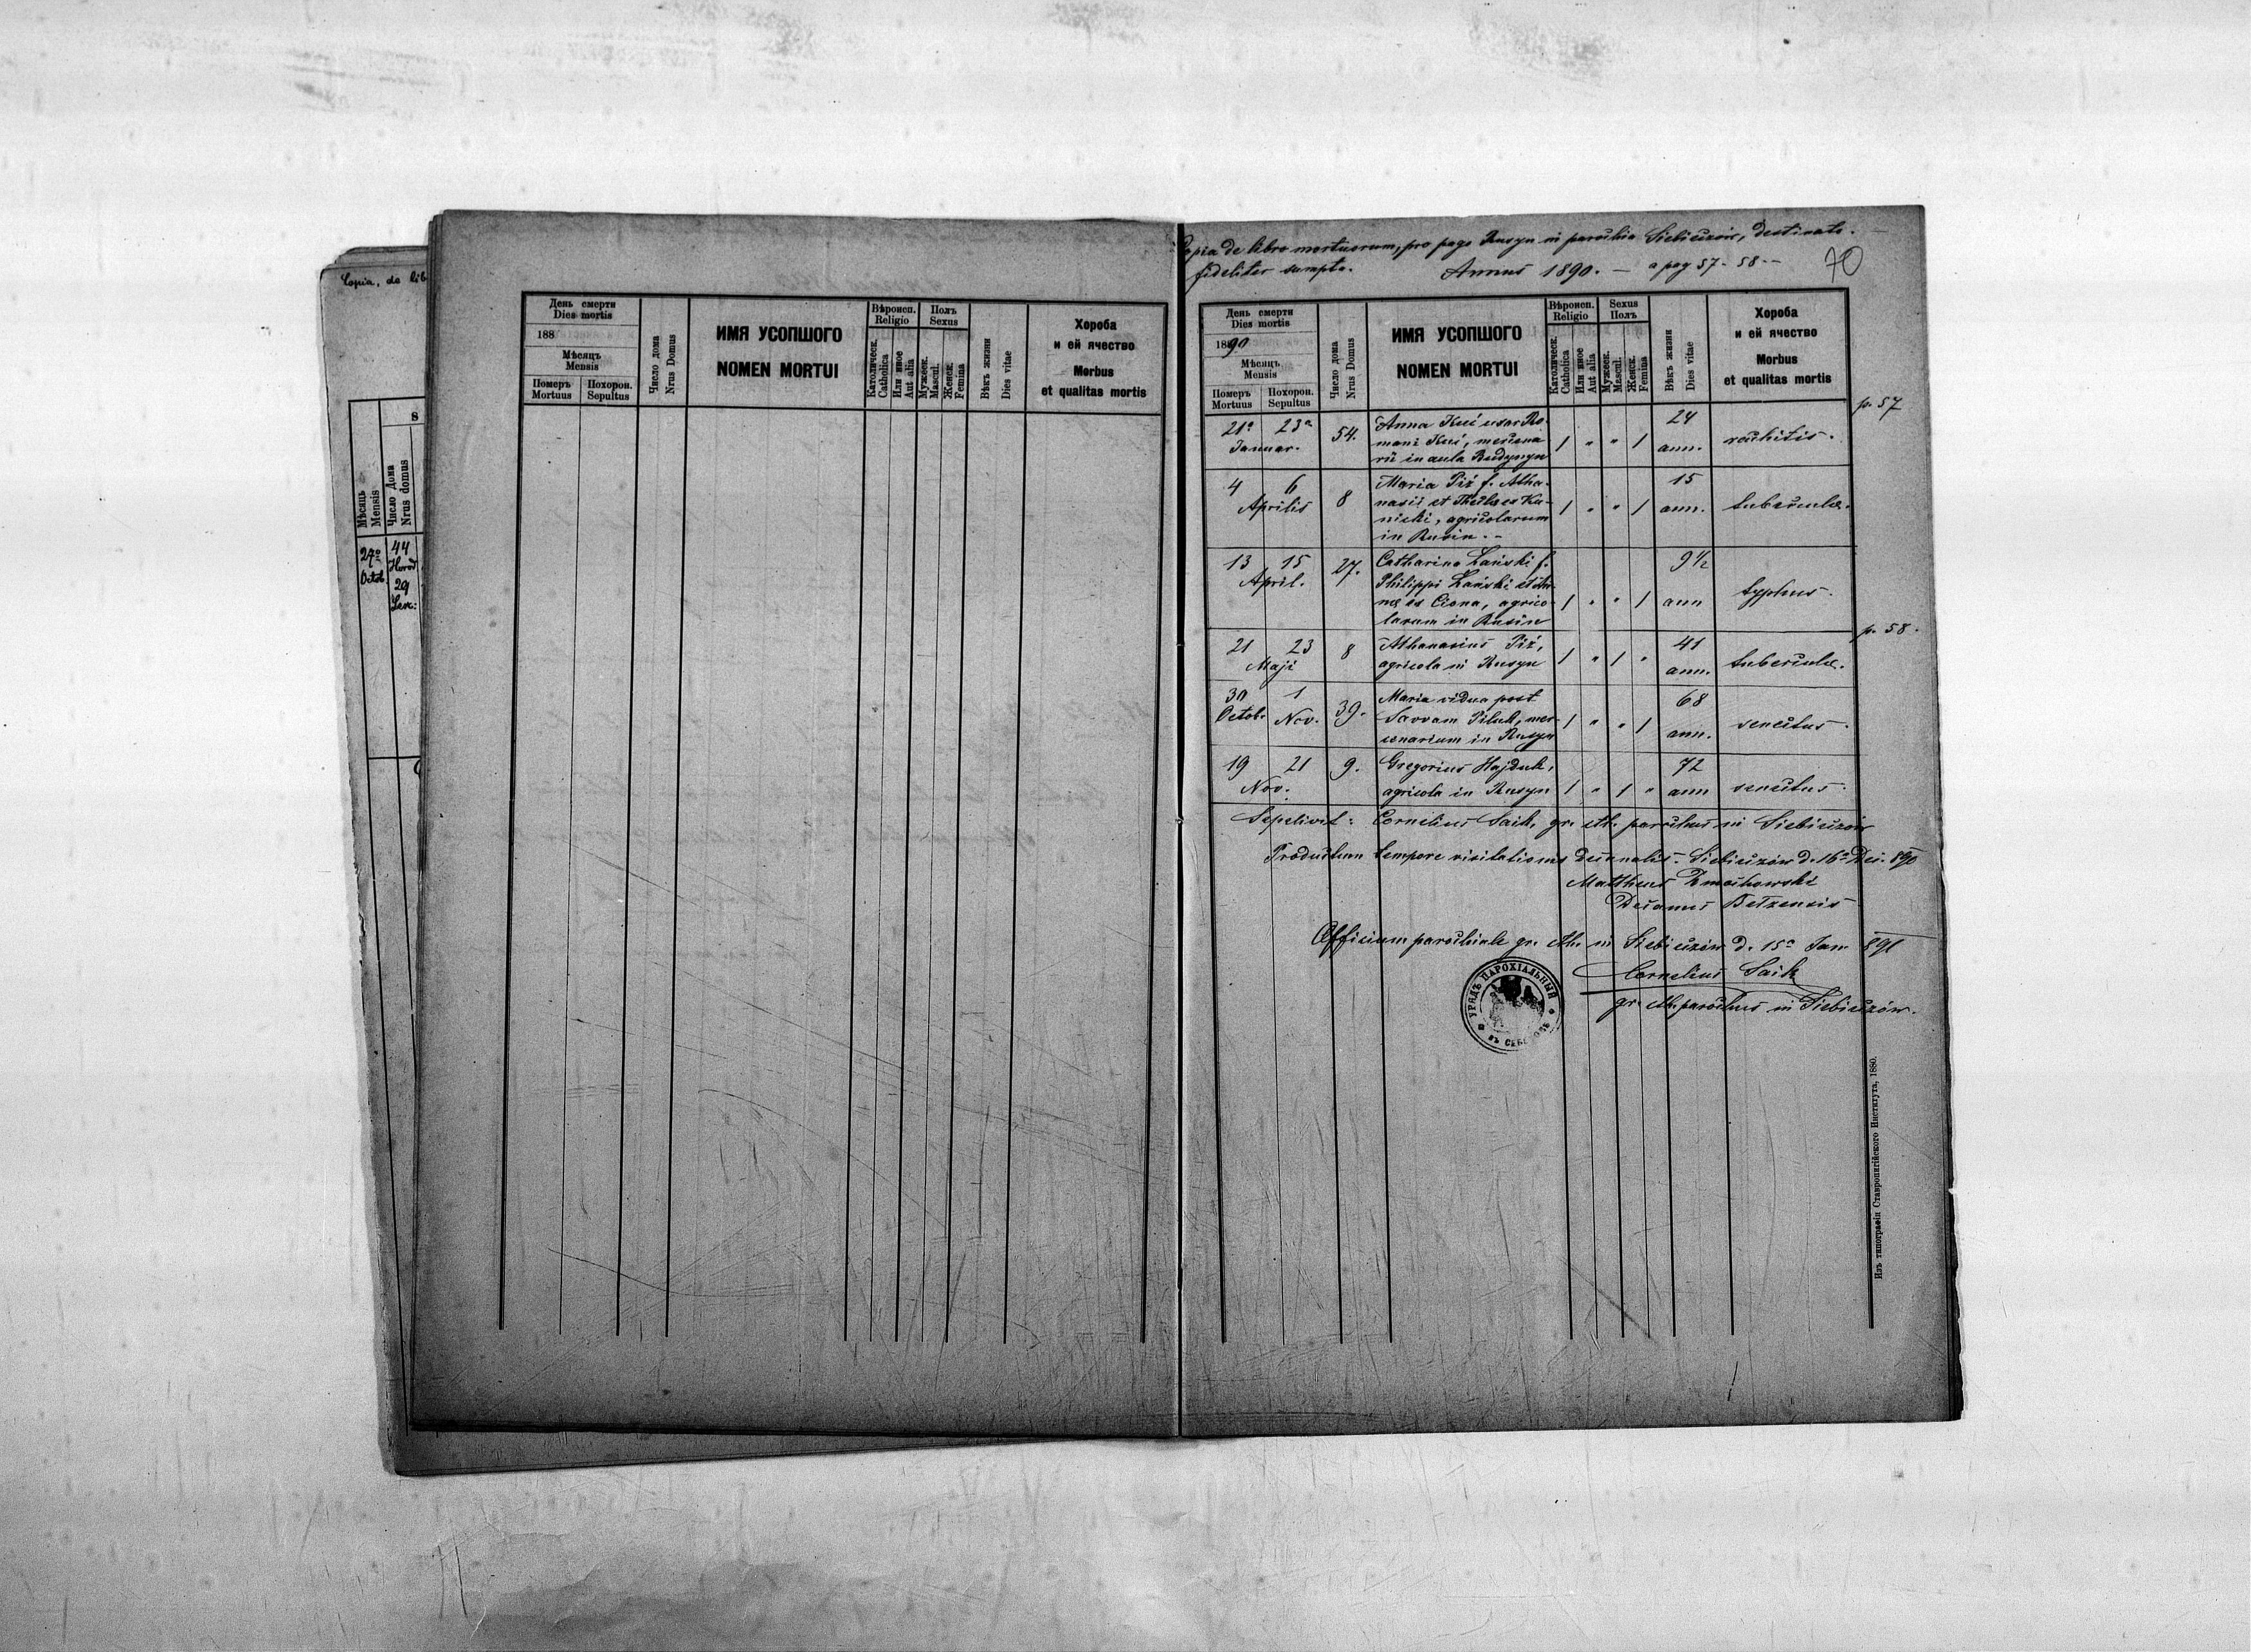 Copia, de lib
Мѣсяць
Mensis
Число Дома
Nrus domus
27a
Octob.
44
29
День смерти
Dies mortis
188
Мѣсяцъ
Mensis
Померъ
Mortuus
Похорон.
Sepultus
Число дома
Nrus Domus
ИМЯ УСОПШОГО
NOMEN MORTUI
Вѣроисп.
Religio
Католическ.
Catholica
Или иное
Aut alia
Полъ
Sexus
Мужеск.
Mascul.
Женск.
Femina
Вѣкъ жизни
Dies vitae
Хороба
и ей ячество
Morbus
et qualitas mortis
Copia de libro mortuorum, pro pago Rusyn in parochia Siebieczów, destinato.
fideliter sumpta. Annus 1890. — a pag 57 - 58 -
70
День смерти
Dies mortis
1890
Мѣсяцъ
Mensis
Померъ
Mortuus
Похорон.
Sepultus
Число дома
Nrus Domus
ИМЯ УСОПШОГО
NOMEN MORTUI
Вѣроисп.
Religio
Католическ.
Catholica
Или иное
Aut alia
Sexus
Полъ
Мужеск.
Mascul.
Женск.
Femina
Вѣкъ жизни
Dies vitae
Хороба
и ей ячество
Morbus
et qualitas mortis
p. 57
21a 23a 54. Anna Kuć uxor Ro- 24
Januar. mani Kuć, mercena- 1 " " 1 ann. rachitis.
rii in aula Budynyn
4 6 8 Maria Piż f. Atha- 15
Aprilis nasii et Theclae Ku- 1 " " 1 ann. tubercula.
nicki, agricolarum
in Rusin. -
13 15 27. Catharina Lański f. 9 1/2
April. Philippi Lański et An-
nae ex Ciona, agrico- 1 " " 1 ann typhus.
larum in Rusin
p. 58.
21 23 8 Athanasius Piż, 41
Maji agricola in Rusyn 1 " 1 " ann. tubercula.
30 1 39. Maria vidua post 68
Octob. Nov. Savvam Piluk, mer- 1 " " 1 ann. senectus.
cenarium in Rusyn
19 21 9. Gregorius Hajduk, 72
Nov. agricola in Rusyn 1 " 1 " ann senectus.
Sepelivit: Cornelius Saik, gr. cth. parochus in Siebieczów
Productum tempore visitationis decanalis. Siebieczów d. 16a Dec. 890
Mattheus
Decanus Betzensis
Officium parochiale gr. cth. in Siebieczów d. 15a Jan 891
Cornelius Saik
gr. cth. parochus in Siebieczów.
УРЯДЪ ПАРОХІАЛЬНЫЙ
Изъ типографіи Ставропигійского Института, 1880.